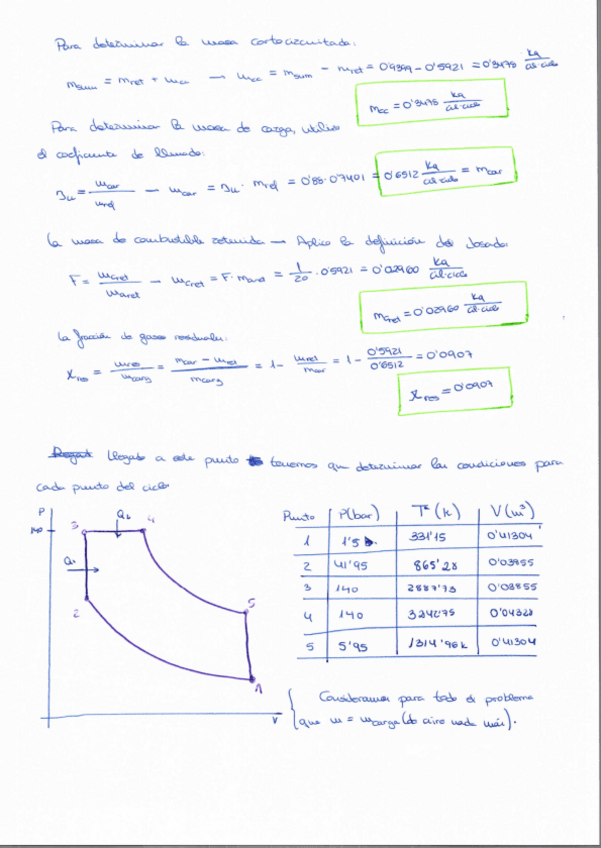 Para determinar la masa cortocircuitada:
m_sum = m_ret + m_cc → m_cc = m_sum - m_ret = 0'9399 - 0'5921 = 0'3478 kg/cil·ciclo
m_cc = 0'3478 kg/cil·ciclo
Para determinar la masa de carga, utilizo
el coeficiente de llenado:
m_car = · m_ref = 0'88 · 0'7401 = 0'6512 kg/cil·ciclo = m_car
La masa de combustible retenida → Aplico la definición del dosado:
F = m_cret/m_aret → m_cret = F · m_aret = 1/20 · 0'5921 = 0'02960 kg/cil·ciclo
m_cret = 0'02960 kg/cil·ciclo
La fracción de gases residuales:
X_res = m_res/m_carg = m_car - m_ret/m_carg = 1 - m_ret/m_car = 1 - 0'5921/0'6512 = 0'0907
X_res = 0'0907
Llegado a este punto tenemos que determinar las condiciones para
cada punto del ciclo
P
140
Q2
3
4
Q1
2
5
1
V
Punto P(bar) Tª(k) V(m³)
1 1'5 331'15 0'41304
2 41'95 865'28 0'03855
3 140 2887'73 0'03855
4 140 3242'75 0'04328
5 5'95 1314'96k 0'41304
Consideramos para todo el problema
que m = m_carga (de aire nada más).